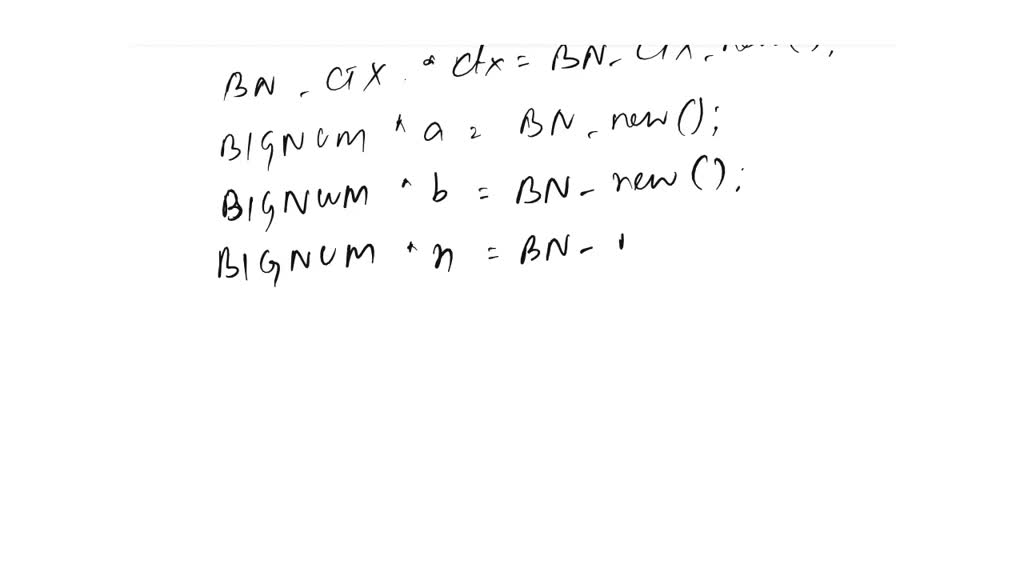 BN_CTX * ctx = BN_CTX_new();
BIGNUM * a = BN_new();
BIGNUM * b = BN_new();
BIGNUM * n = BN_